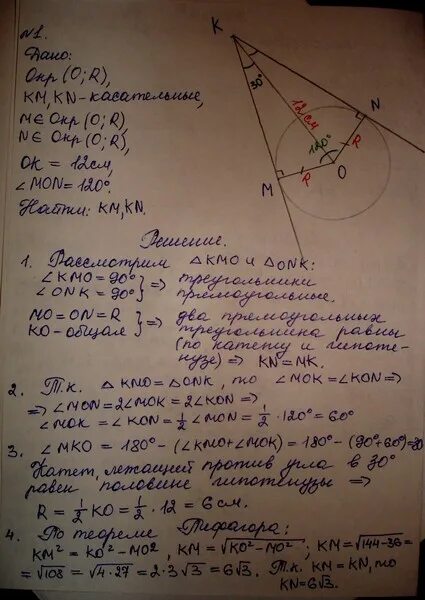 №1.
Дано:
Окр (O; R),
KM, KN - касательные,
M ∈ Окр (O; R)
N ∈ Окр (O; R),
OK = 12см,
∠MON = 120°.
Найти: KM, KN.
K
30°
12 см
N
120°
R
M
R
O
Решение.
1. Рассмотрим △KMO и △ONK:
∠KMO = 90° } ⇒ треугольники
∠ONK = 90° } прямоугольные.
MO = ON = R } ⇒ два прямоугольных
KO - общая } треугольника равны
(по катету и гипоте-
нузе) ⇒ KN = MK.
2. Т.к. △KMO = △ONK, то ∠MOK = ∠KON ⇒
⇒ ∠MON = 2∠MOK = 2∠KON ⇒
∠MOK = ∠KON = 1/2 ∠MON = 1/2 · 120° = 60°
3. ∠MKO = 180° - (∠KMO + ∠MOK) = 180° - (90° + 60°) = 30
Катет, лежащий против угла в 30°
равен половине гипотенузы ⇒
R = 1/2 KO = 1/2 · 12 = 6 см.
4. По теореме Пифагора:
KM² = KO² - MO², KM = √KO² - MO² ; KM = √144 - 36 =
= √108 = √4 · 27 = 2 · 3√3 = 6√3. Т.к. KM = KN, то
KN = 6√3.